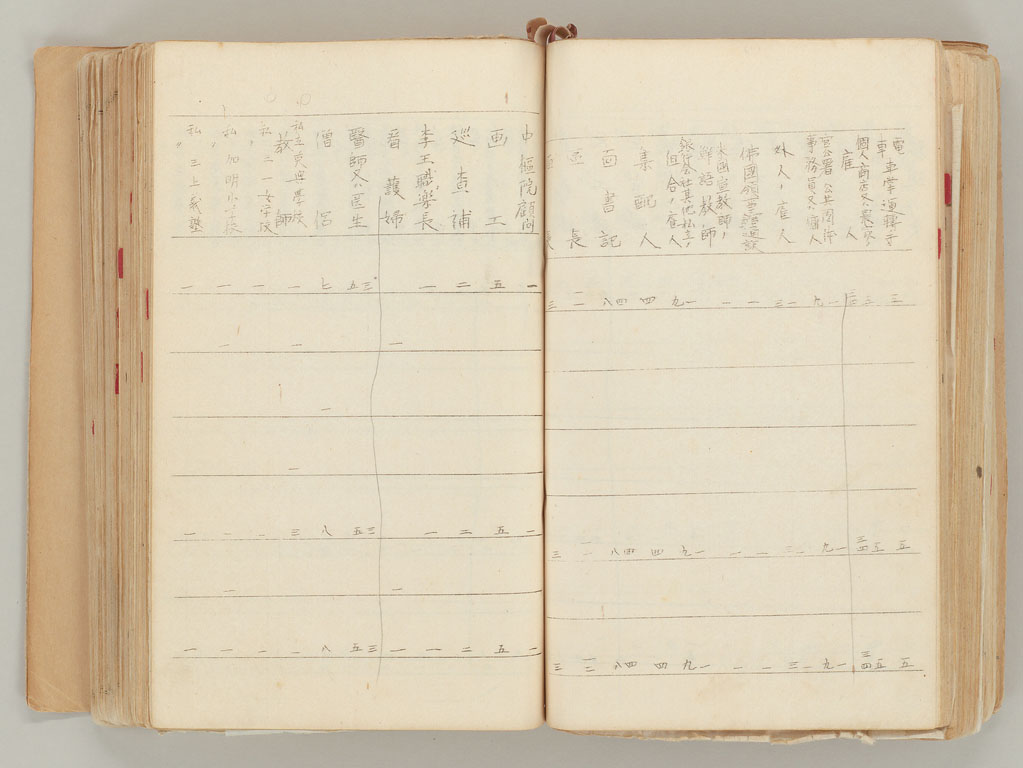 電車車掌運轉手
個人商店又ハ農家
雇人
官公署公共團体
事務員又ハ雇人
外人ノ雇人
佛國領事館通譯
米國宣教師ノ
鮮語教師
銀行会社其他私立ノ
組合ノ雇人
集配人
面書記
区長
三 三 三 九 一 三 一 一 一 九 四 四八 二 三
五 五 三四 一 九 一 三 一 一 一 九 四 四八 二 三
五 五 三四 一 九 一 三 一 一 一 九 四 四八 二 三
中樞院顧問
画工
巡査補
李王職樂長
看護婦
醫師又ハ医生
僧侶
私立更興學校
教師
私〃三一女学校
私〃加明小学校
私〃三上義塾
一 五 二 一 三五 七 一 一 一 一
一 一 一
一
一
一 五 二 一 三五 八 三 一 一 一
一 一
一 五 二 一 一 三五 八 一 一 一 一